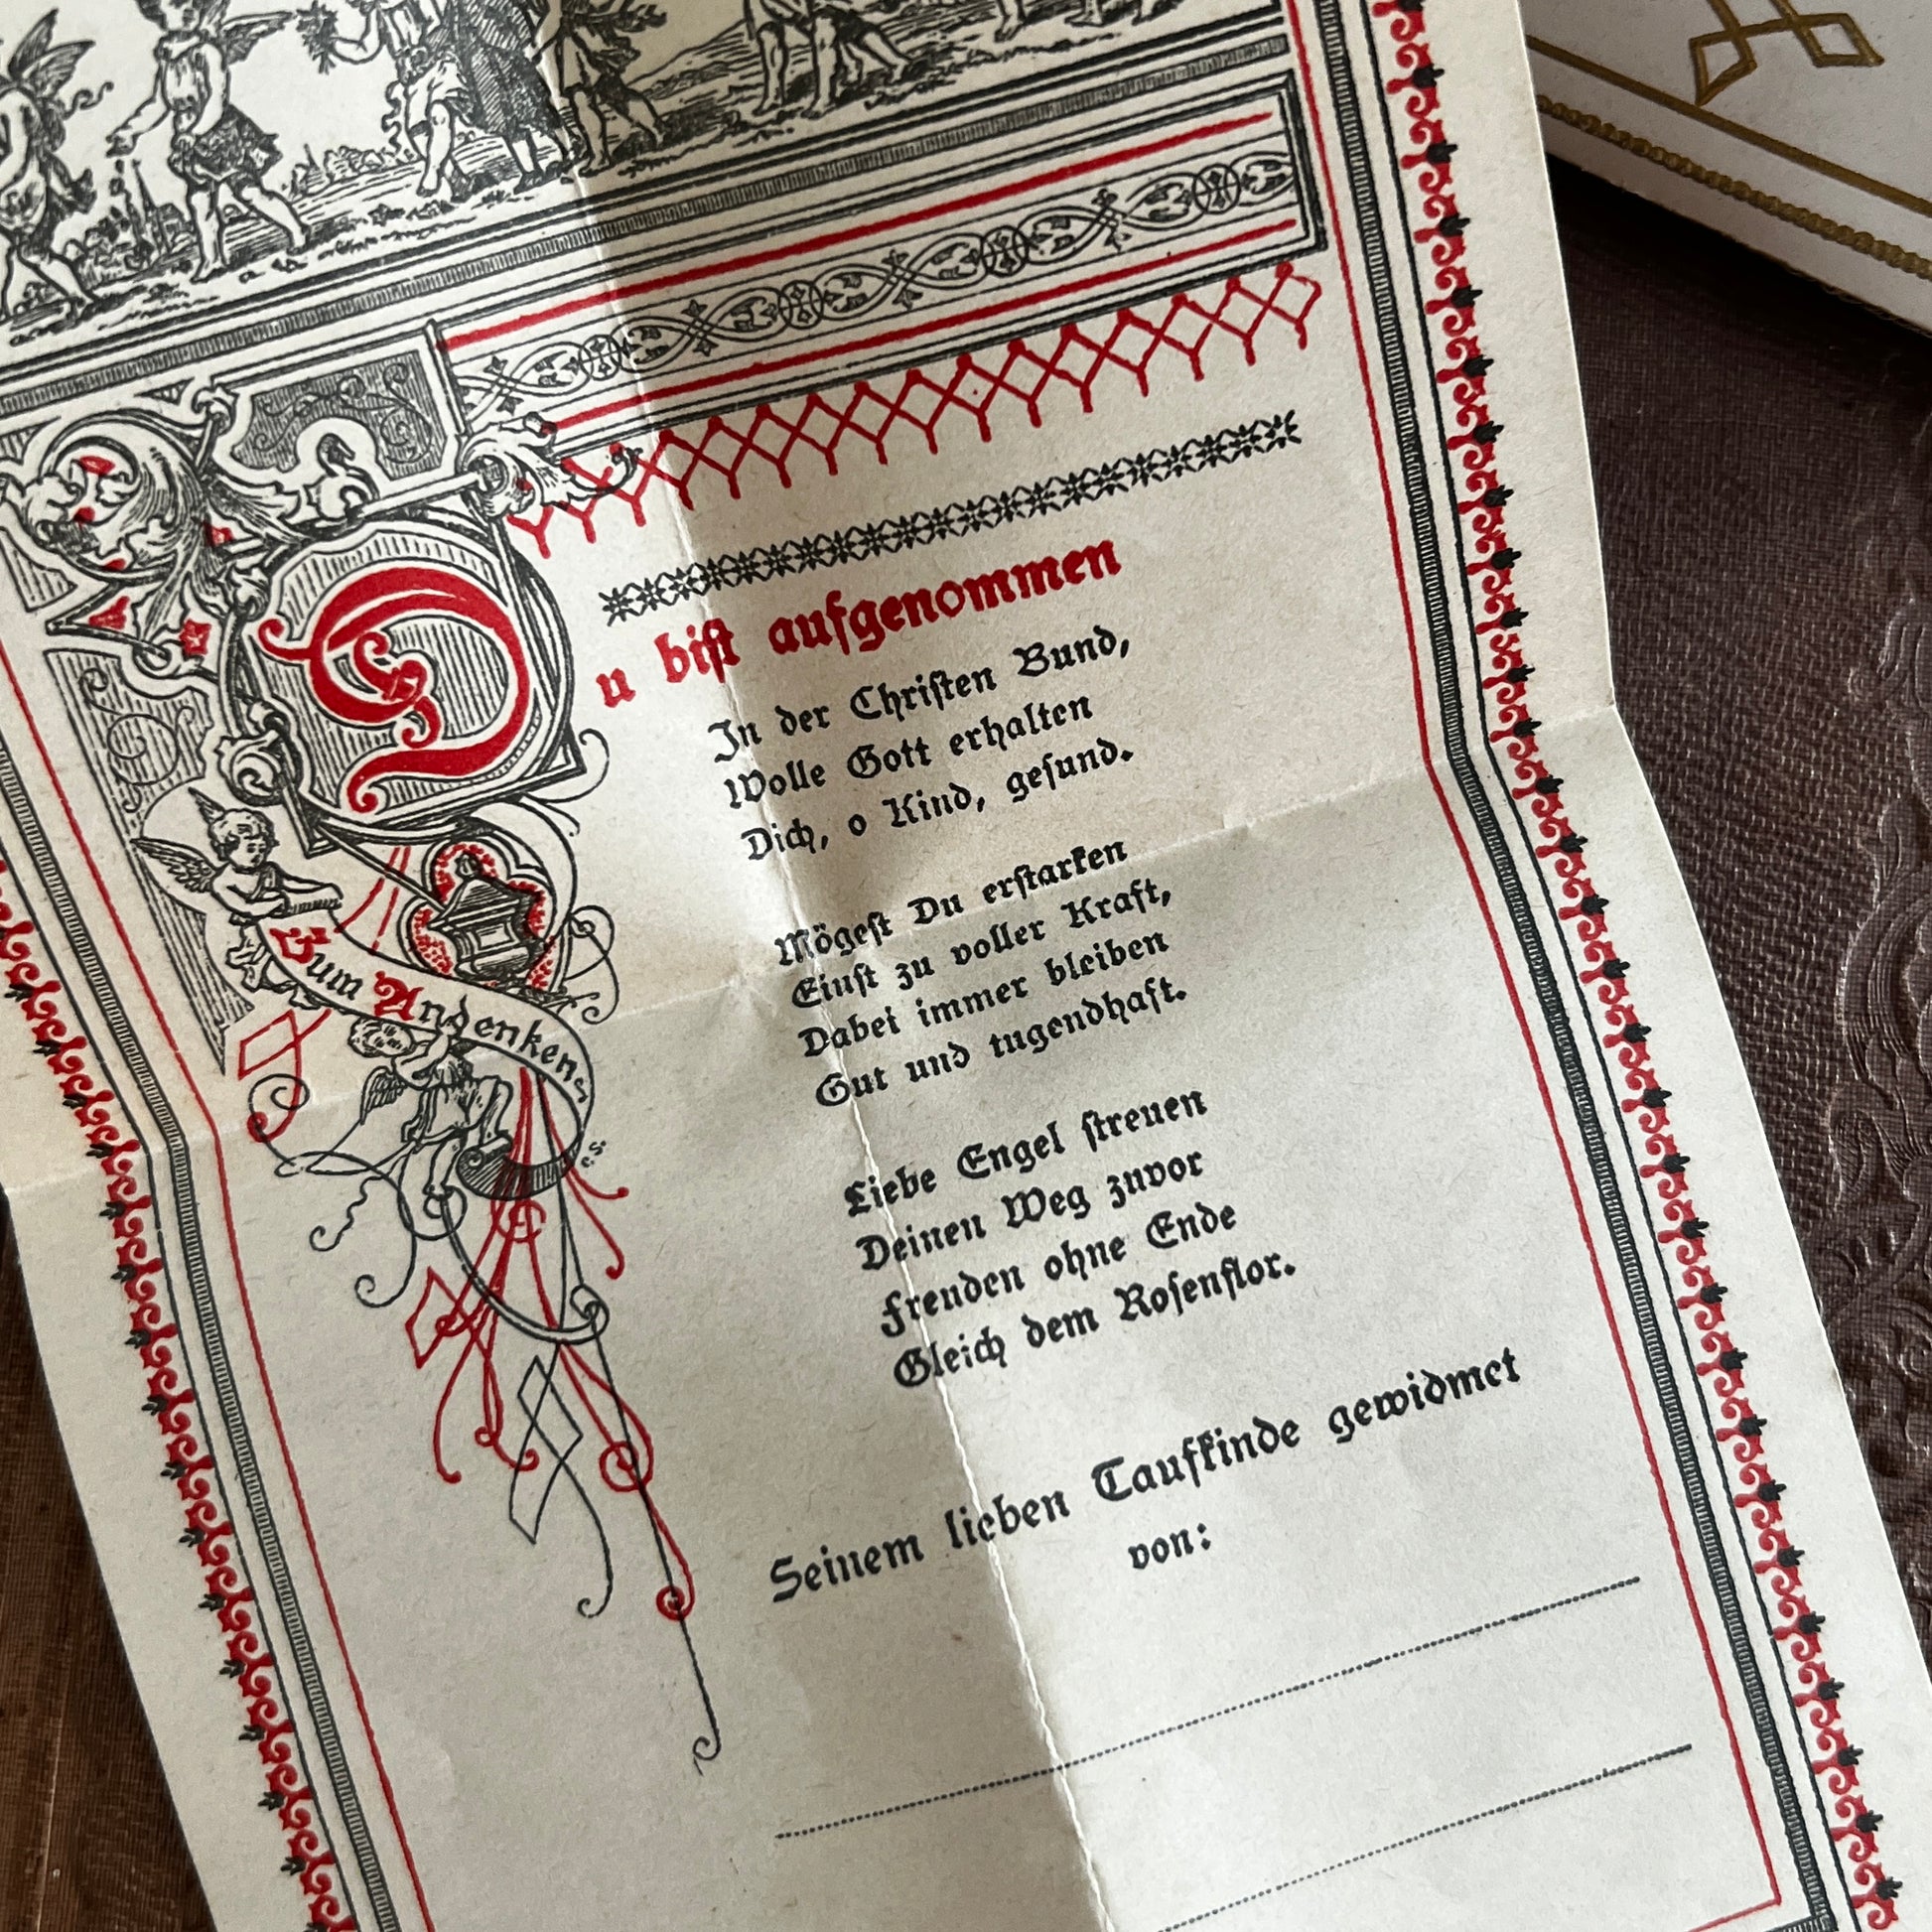 Du bist aufgenommen
In der Christen Bund,
Wolle Gott erhalten
Dich, o Kind, gesund.
Mögest Du erstarken
Einst zu voller Kraft,
Dabei immer bleiben
Gut und tugendhaft.
Liebe Engel streuen
Deinen Weg zuvor
Freuden ohne Ende
Gleich dem Rosenflor.
Zum Andenken
Seinem lieben Taufkinde gewidmet
von: